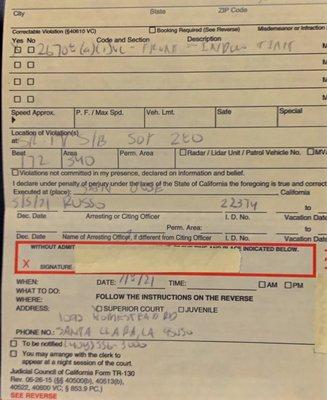 City State ZIP Code
Correctable Violation (§40610 VC) Booking Required (See Reverse) Misdemeanor or Infraction
Yes No Code and Section Description
FRONT - TINT
Speed Approx. P. F. / Max Spd. Veh. Lmt. Safe Special
Location of Violation(s)
at: S/B S/OF 280
Beat Area Perm. Area Radar / Lidar Unit / Patrol Vehicle No.
172 340
Violations not committed in my presence, declared on information and belief.
I declare under penalty of perjury under the laws of the State of California the foregoing is true and correct
Executed at (place): SAN JOSE California
5/5/21 RUSSO 22374
Dec. Date Arresting or Citing Officer I. D. No. Vacation Dates
Perm. Area:
Dec. Date Name of Arresting Officer, if different from Citing Officer I. D. No. Vacation Dates
WITHOUT ADMIT PLACE INDICATED BELOW.
X SIGNATURE
WHEN: DATE: /21 TIME: AM PM
WHAT TO DO: FOLLOW THE INSTRUCTIONS ON THE REVERSE
WHERE: SUPERIOR COURT JUVENILE
ADDRESS: 1095 HOMESTEAD RD
SANTA CLARA, CA 95050
PHONE NO.:
To be notified (408) 556-3000
You may arrange with the clerk to
appear at a night session of the court.
Judicial Council of California Form TR-130
Rev. 06-26-15 (§§ 40500(b), 40513(b),
40522, 40600 VC; § 853.9 P.C.)
SEE REVERSE